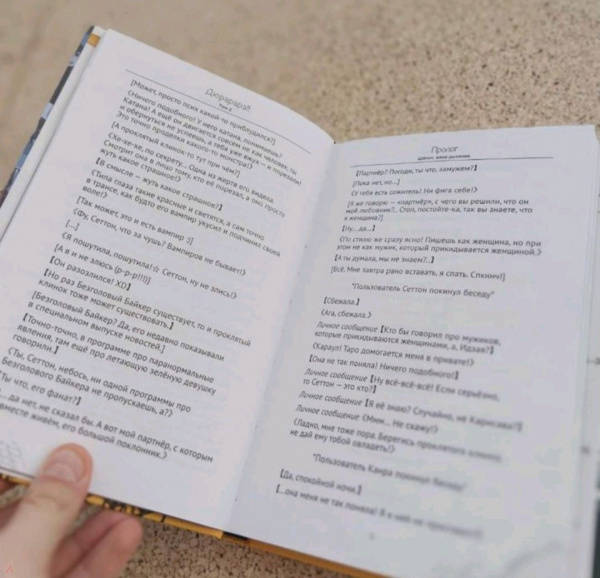 Дюрарара!!
Том 2
[Может, просто псих какой-то приблудился?]
⟨Ничего подобного! У него катана, понимаешь?
Катана! А ещё он двигается совсем не как человек, ты
и обернуться не успеешь, а тебя уже вжух — и порезали!
Это точно проделки какого-то монстра!⟩
[А проклятый клинок-то тут при чём?]
⟨Хе-хе-хе, по секрету... Одна из жертв его видела.
Смотрит она в лицо тому, кто её порезал, а оно просто
жуть какое страшное!⟩
【В смысле — жуть какое страшное?】
⟨Типа глаза такие красные и светятся, а сам точно
в трансе, как будто его вампир укусил и подчинил своей
воле!⟩
[Так может, это и есть вампир :)]
⟨Фу, Сеттон, что за чушь? Вампиров не бывает!⟩
[...]
⟨Я пошутила, пошутила!☆ Сеттон, ну не злись!⟩
[А я и не злюсь (р-р-р!!!)]
【Он разозлился! XD】
【Но раз Безголовый Байкер существует, то и проклятый
клинок тоже может существовать.】
[Безголовый Байкер? Да, его недавно показывали
в специальном выпуске новостей.]
【Точно-точно, в программе про паранормальные
явления, там ещё про летающую зелёную девушку
говорили.】
⟨Ты, Сеттон, небось, ни одной программы про
Безголового Байкера не пропускаешь, а?⟩
Ты что, его фанат?】
... да нет, не сказал бы. А вот мой партнёр, с которым
вместе живём, его большой поклонник.⟩
Пролог
【Партнёр? Погоди, ты что, замужем?】
[Пока нет, но...]
⟨У тебя есть сожитель! Ни фига себе!⟩
[Я же говорю — «партнёр», с чего вы решили, что он
мой любовник?.. Стоп, постойте-ка, так вы знаете, что
я женщина?]
【Ну...да...】
⟨По стилю же сразу ясно! Пишешь как женщина, но при
этом не как мужик, который прикидывается женщиной.⟩
【А ты думала, мы не знаем?..】
[Всё. Мне завтра рано вставать, я спать. Спкнич!]
"Пользователь Сеттон покинул беседу"
【Сбежала.】
⟨Ага, сбежала.⟩
Личное сообщение【Кто бы говорил про мужиков,
которые прикидываются женщинами, а, Идзая?】
⟨Караул! Таро домогается меня в привате!⟩
【Она не так поняла! Ничего подобного!】
Личное сообщение【Ну всё-всё-всё! Если серьёзно,
то Сеттон — это кто?】
Личное сообщение【Я её знаю? Случайно, не Карисава?】
Личное сообщение ⟨Ммм... Не скажу!⟩
⟨Ладно, мне тоже пора. Берегись проклятого клинка,
не дай ему тобой овладеть!⟩
"Пользователь Канра покинул беседу"
【Да, спокойной ночи.】
[...она меня не так поняла!